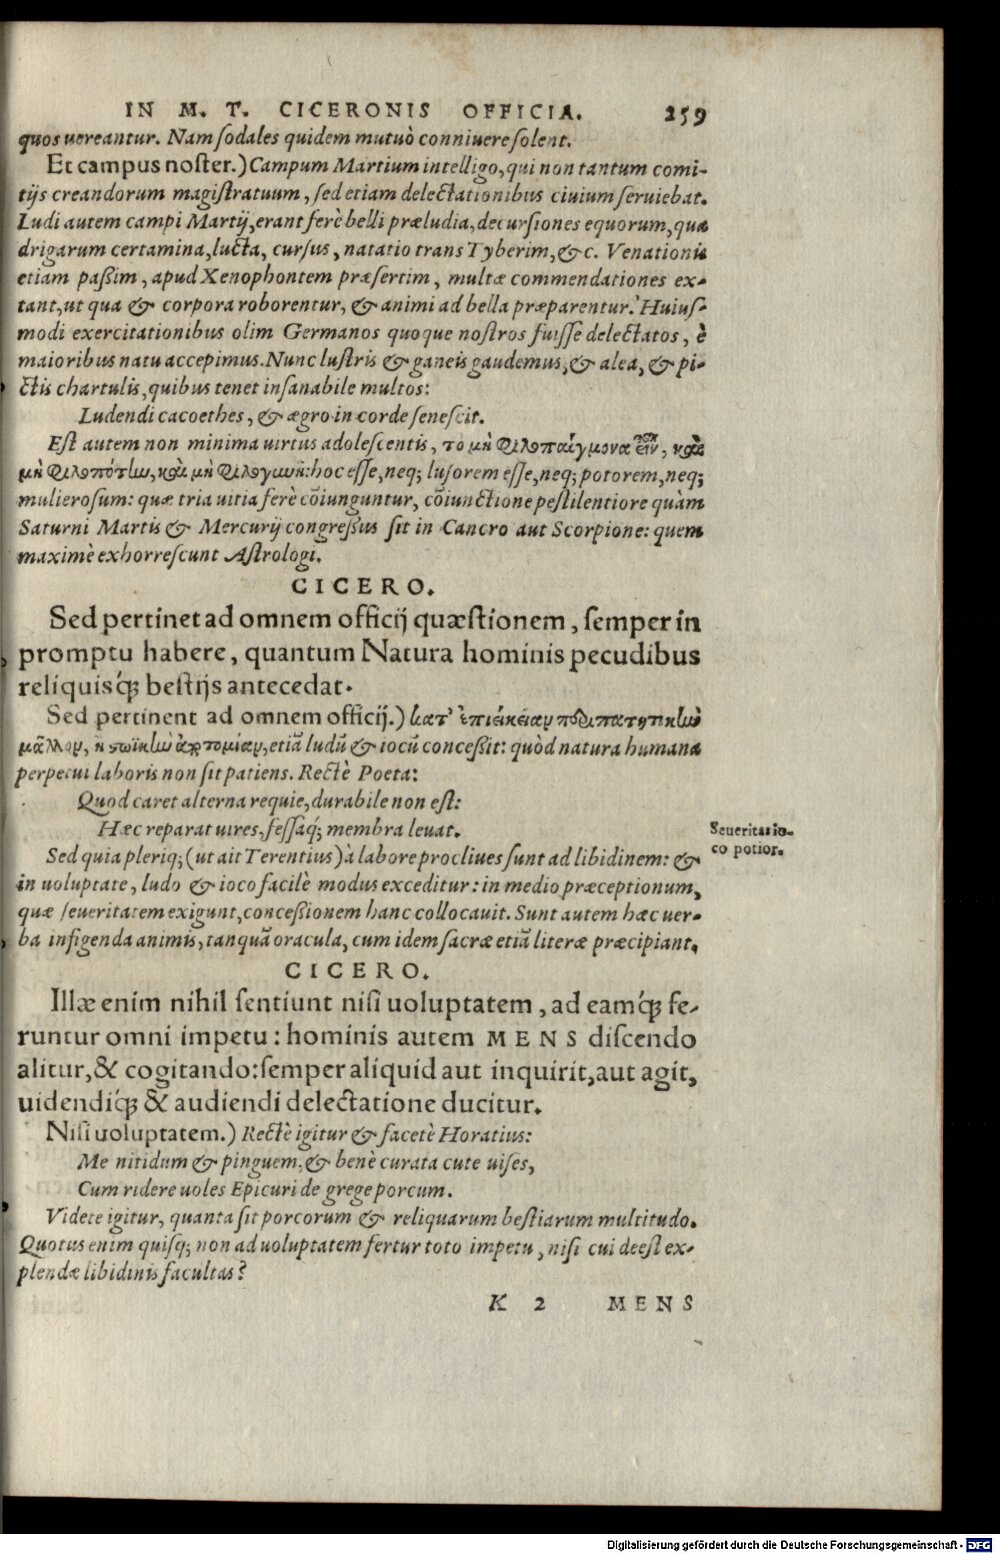 IN M. T. CICERONIS OFFICIA. 259
quos uereantur. Nam sodales quidem mutuò conniuere solent.
Et campus noster.) Campum Martium intelligo, qui non tantum comi-
tijs creandorum magistratuum, sed etiam delectationibus ciuium seruiebat.
Ludi autem campi Martij, erant ferè belli præludia, decursiones equorum, qua
drigarum certamina, lucta, cursus, natatio trans Tyberim, &c. Venationis
etiam paßim, apud Xenophontem præsertim, multæ commendationes ex-
tant, ut qua & corpora roborentur, & animi ad bella præparentur. Huius-
modi exercitationibus olim Germanos quoque nostros fuisse delectatos, è
maioribus natu accepimus. Nunc lustris & ganeis gaudemus, & alea, & pi-
ctis chartulis, quibus tenet insanabile multos:
Ludendi cacoethes, & ægro in corde senescit.
Est autem non minima uirtus adolescentis, τὸ μὴ φιλοπαίγμονα εἶναι, καὶ
μὴ φιλοπότην, καὶ μὴ φιλογύνην: hoc esse, neq; lusorem esse, neq; potorem, neq;
mulierosum: quæ tria uitia ferè cõiunguntur, cõiunctione pestilentiore quàm
Saturni Martis & Mercurij congreßus sit in Cancro aut Scorpione: quem
maximè exhorrescunt Astrologi.
CICERO.
Sed pertinet ad omnem officij quæstionem, semper in
promptu habere, quantum Natura hominis pecudibus
reliquisq́; bestijs antecedat.
Sed pertinent ad omnem officij.) κατ' ἐπιείκειαν περιπατητικὴν
μᾶλλον, ἢ στωϊκὴν ἀποτομίαν, etiã ludũ & iocũ conceßit: quòd natura humana
perpetui laboris non sit patiens. Rectè Poeta:
Quod caret alterna requie, durabile non est:
Hæc reparat uires, fessaq́; membra leuat.
Seueritas io-
co potior.
Sed quia pleriq; (ut ait Terentius) à labore procliues sunt ad libidinem: &
in uoluptate, ludo & ioco facilè modus exceditur: in medio præceptionum,
quæ seueritatem exigunt, conceßionem hanc collocauit. Sunt autem hæc uer-
ba infigenda animis, tanquã oracula, cum idem sacræ etiã literæ præcipiant.
CICERO.
Illæ enim nihil sentiunt nisi uoluptatem, ad eamq́; fe-
runtur omni impetu: hominis autem MENS discendo
alitur, & cogitando: semper aliquid aut inquirit, aut agit,
uidendiq́; & audiendi delectatione ducitur.
Nisi uoluptatem.) Rectè igitur & facetè Horatius:
Me nitidum & pinguem, & benè curata cute uises,
Cum ridere uoles Epicuri de grege porcum.
Videte igitur, quanta sit porcorum & reliquarum bestiarum multitudo.
Quotus enim quisq; non ad uoluptatem fertur toto impetu, nisi cui deest ex-
plendæ libidinis facultas?
K 2 MENS
Digitalisierung gefördert durch die Deutsche Forschungsgemeinschaft - DFG